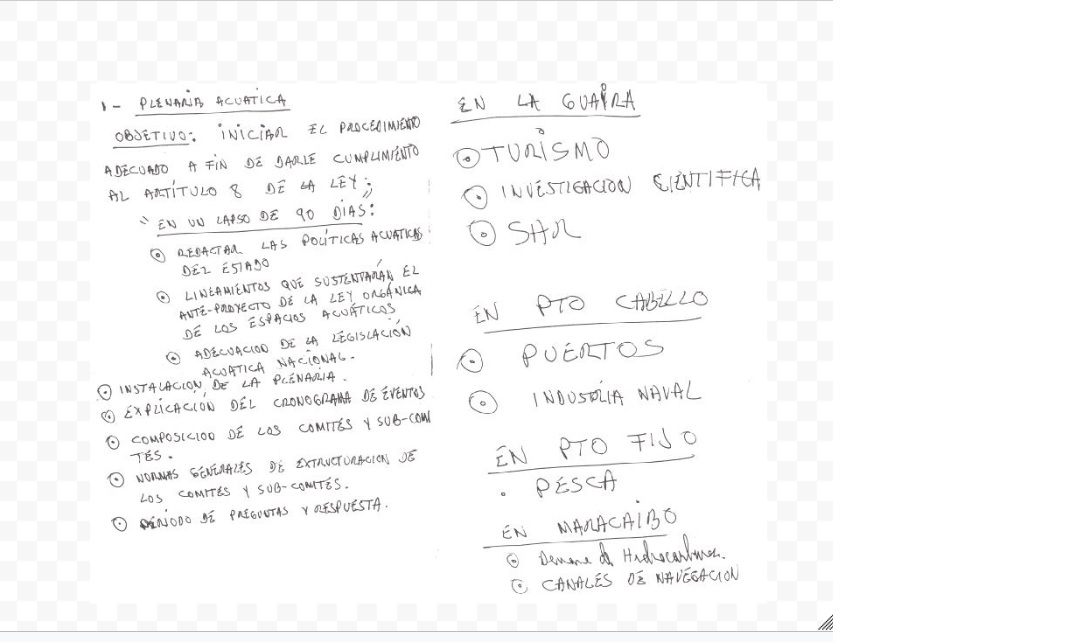 1- PLENARIA ACUATICA
OBJETIVO: INICIAR EL PROCEDIMIENTO
ADECUADO A FIN DE DARLE CUMPLIMIENTO
AL ARTÍTULO 8 DE LA LEY;
" EN UN LAPSO DE 90 DIAS:
REDACTAR LAS POLÍTICAS ACUATICAS
DEL ESTADO
LINEAMIENTOS QUE SUSTENTARÁN EL
ANTE-PROYECTO DE LA LEY ORGÁNICA
DE LOS ESPACIOS ACUÁTICOS
ADECUACION DE LA LEGISLACIÓN
ACUATICA NACIONAL.
INSTALACIÓN DE LA PLENARIA.
EXPLICACIÓN DEL CRONOGRAMA DE EVENTOS
COMPOSICION DE LOS COMITÉS Y SUB-COMI
TÉS.
NORMAS GENERALES DE EXTRUCTURACION DE
LOS COMITÉS Y SUB-COMITÉS.
PERIODO DE PREGUNTAS Y RESPUESTA.
EN LA GUAIRA
TURISMO
INVESTIGACION CIENTIFICA
SAR
EN PTO CABELLO
PUERTOS
INDUSTRIA NAVAL
EN PTO FIJO
. PESCA
EN MARACAIBO
de Hidrocarburos.
CANALES DE NAVEGACION